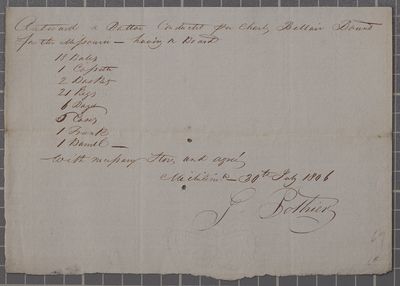 Outward a Batteau Conducted per Charly Bellair Bound
for the Missourie — having on Board
18 Bales
1 Cassette
2 Baskets
21 Kegs
6 Bags
5 Cases
1 Trunk
1 Barrel —
With necessary Stores and agrés
Michilimc — 30th July 1806
G Pothier